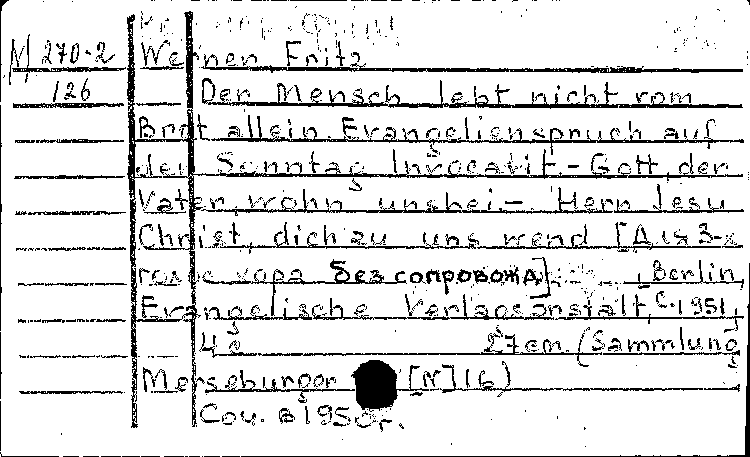 M 270-2
126
Wernen, Fritz
Der Mensch lebt nicht vom
Brot allein. Evangelienspruch auf
den Sonntag Invocavit. - Gott, der
Vater, wohn uns bei. - Herr Jesu
Christ, dich zu uns wend [Для 3-х
голос хора без сопровожд]. Berlin,
Evangelische Verlagsanstalt, C. 1951,
4 c 27 cm. (Sammlung
Merseburger [N] 16)
Соч. в 1950 г.